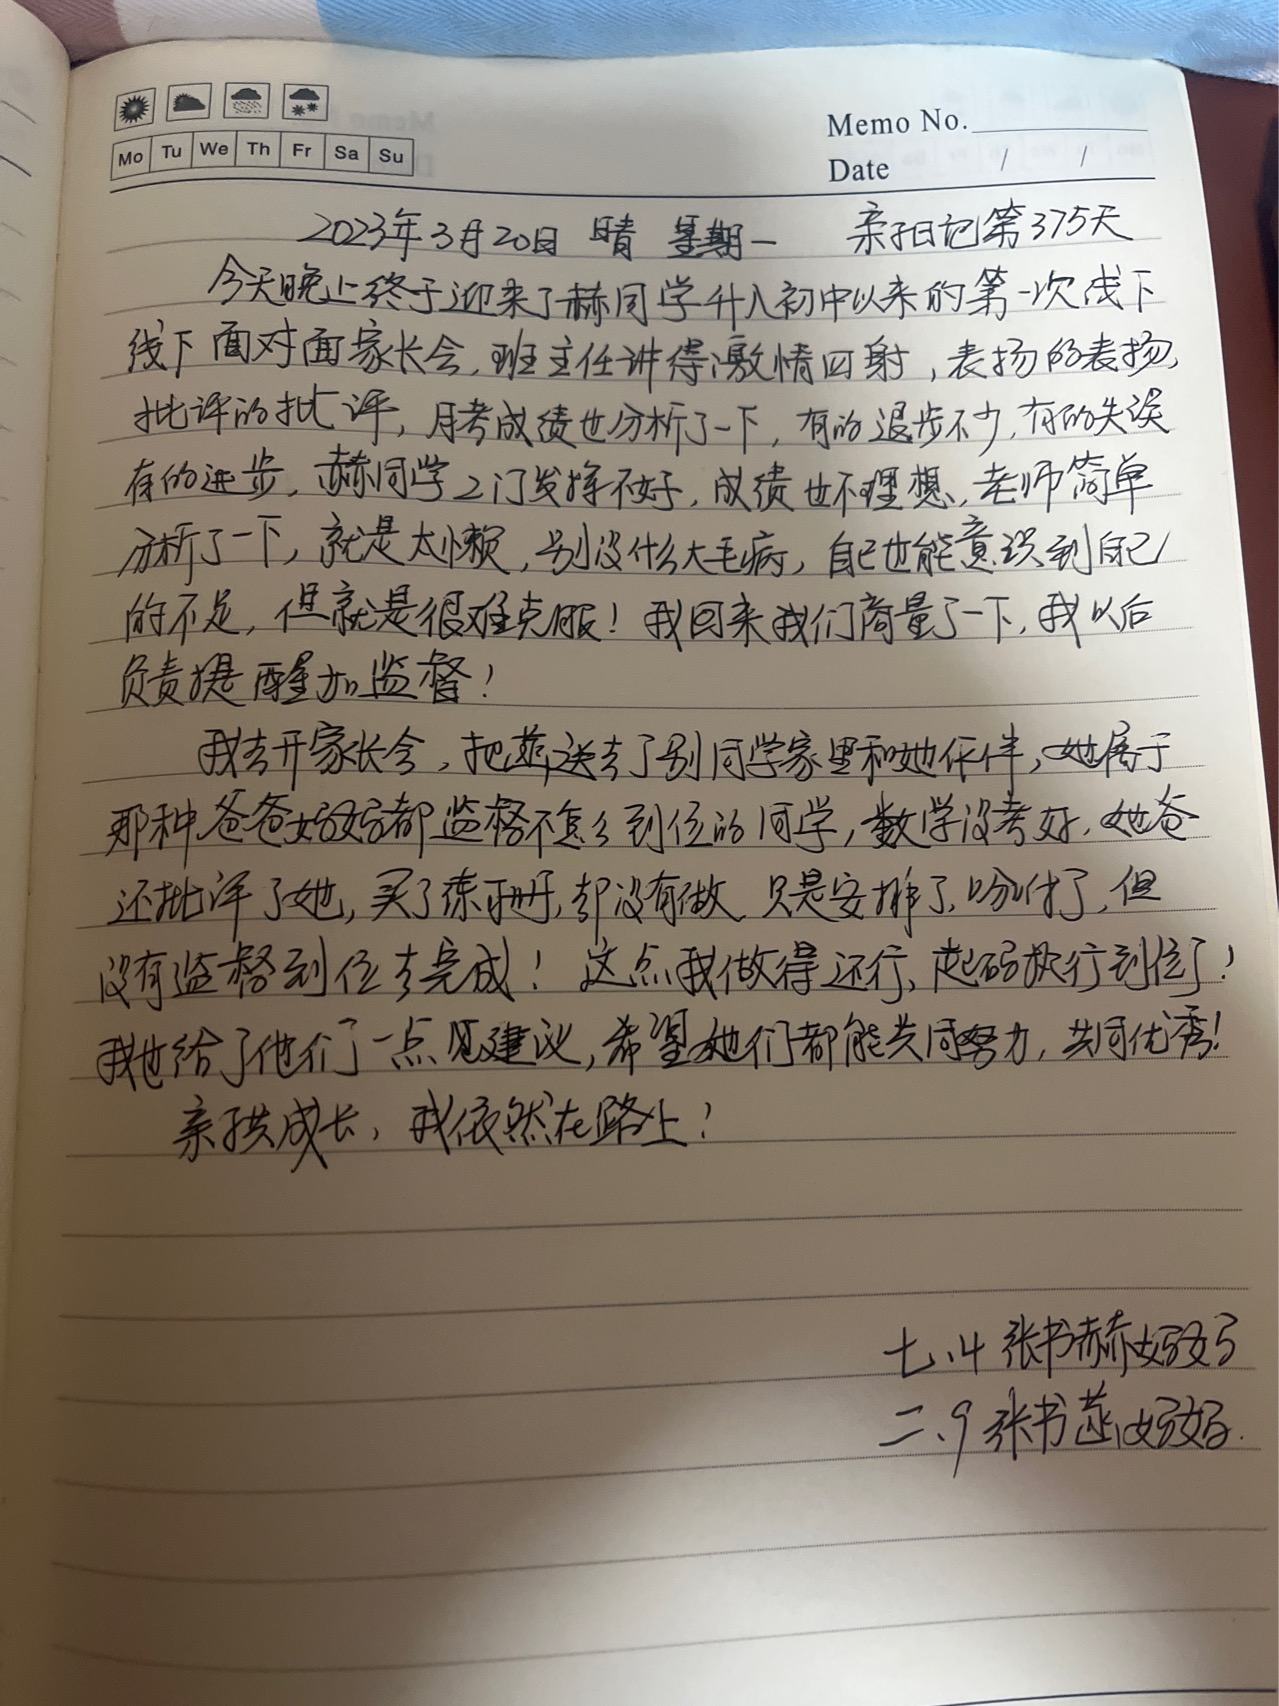 Memo No.
Mo Tu We Th Fr Sa Su
Date / /
2023年3月20日 晴 星期一 亲子日记第375天
今天晚上终于迎来了赫同学升入初中以来的第一次线下
线下面对面家长会,班主任讲得激情四射,表扬的表扬,
批评的批评,月考成绩也分析了一下,有的退步不少,有的失误
有的进步,赫同学2门发挥不好,成绩也不理想,老师简单
分析了一下,就是太懒,别没什么大毛病,自己也能意识到自己
的不足,但就是很难克服!我回来我们商量了一下,我以后
负责提醒加监督!
我去开家长会,把燕送去了别同学家里和她作伴,她属于
那种爸爸妈妈都监督不怎么到位的同学,数学没考好,她爸
还批评了她,买了练习册,却没有做,只是安排了,吩咐了,但
没有监督到位去完成!这点我做得还行,起码执行到位了!
我也给了他们了一点见建议,希望她们都能共同努力,共同优秀!
亲子共成长,我依然在路上!
七.4 张书赫妈妈
二.9 张书燕妈妈.